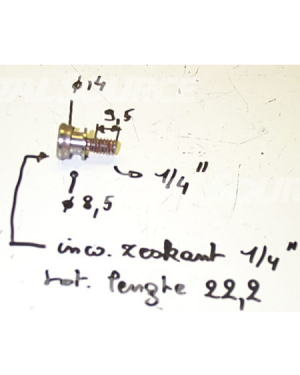 ø 14
9,5
1/4"
ø 8,5
inw. zeskant 1/4"
tot. lengte 22,2